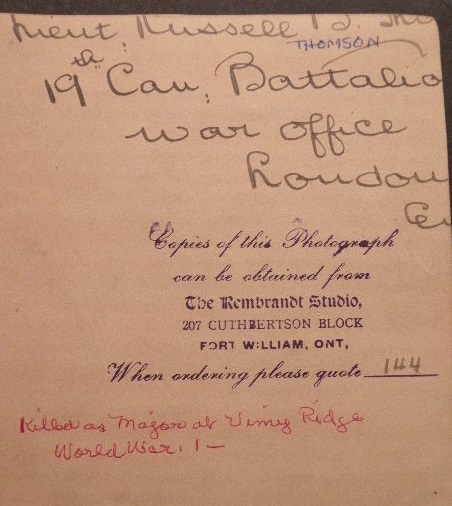 Lieut Russell B. Tho
THOMSON
19th Can. Battalio
war office
London
En
Copies of this Photograph
can be obtained from
The Rembrandt Studio,
207 CUTHBERTSON BLOCK
FORT WILLIAM, ONT,
When ordering please quote 144
Killed as Major at Vimy Ridge
World War. 1 —